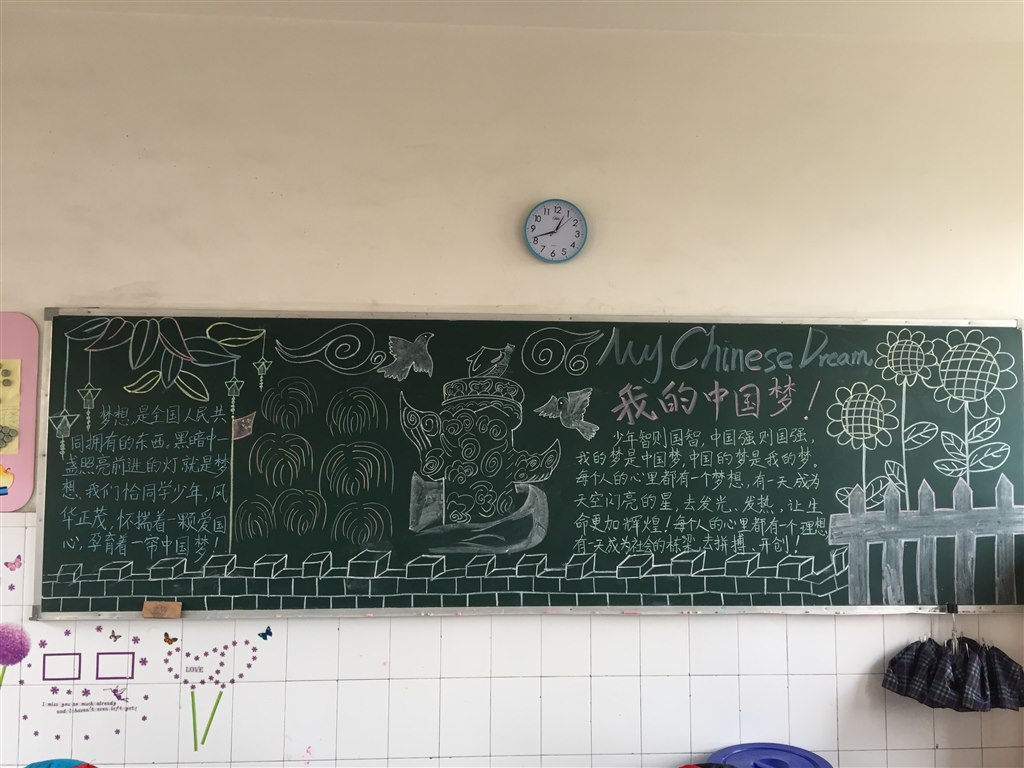 12
1
2
3
4
5
6
7
8
9
10
11
My Chinese Dream
我的中国梦！
梦想，是全国人民共
同拥有的东西，黑暗中一
盏照亮前进的灯就是梦
想、我们恰同学少年，风
华正茂，怀揣着一颗爱国
心，孕育着一帘中国梦
少年智则国智，中国强则国强，
我的梦是中国梦，中国的梦是我的梦。
每个人的心里都有一个梦想，有一天成为
天空闪亮的星，去发光、发热、让生
命更加辉煌！每个人的心里都有个理想
有一天成为社会的栋梁，去拼搏、开创！
LOVE
I miss you so much already
and I haven't even left yet!